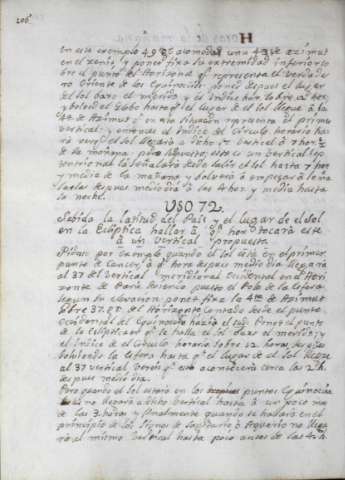 206
en este exemplo 49 gr. acomodad una 4ta de azimut
en el zenit, y poned fixa su extremidad inferior so
bre el punto del Horizonte qe representa el verdade
ro Oriente de los Equinoccios; poned despues el lugar
del sol baxo el
y bolved el Globo hasta qe el lugar de el sol llegue à la
4ta de Azimut qe en esta situacion representa el primer
vertical; y entonces el Indice del Circulo horario
vertical llegarà à dicho 1er vertical à 7 hor. ½
de la mañana
tentrional le señalarà desde salir el Sol hasta 7 hor.
y media de la mañana, y bolverà à empezar à seña
larlas despues medio dia à las 4 hor. y media hasta
la noche.
USO 72.
Sabida la latitud del Pais, y el lugar de el sol
en la Ecliptica hallar à qe hora tocarà este
à un vertical propuesto.
Pidese por exemplo quando el Sol està en el primer
punto de Cancer, à qe hora despues medio dia llegarà
al 37 del vertical meridional occidental en el Hori
zonte de Paris. Aviendo puesto el Polo de la esfera
segun su elevacion poned fixa la 4ta de Azimut
sobre 37 gr. del Horizonte contado desde el punto
occidental del Equinoccio hacia el sud. Poned el punto
de la ecliptica de qe se halla el Sol bajo el meridi. y
el Indice de el Circulo horario sobre 12 horas, despues
bolviendo la esfera hasta qe el lugar de el sol llegue
al 37 vertical vereis qe esto acontecerà cerca las 2 h.
despues medio dia.
Pero quando el sol estarà en los puntos Equinoccia
les no llegarà à dicho vertical hasta à un poco mas
de las 3 horas y finalmente quando se hallarà en el
principio de los signos de Sagitario ò Aquario no llega
rà al mismo vertical hasta poco antes de las 4 h.